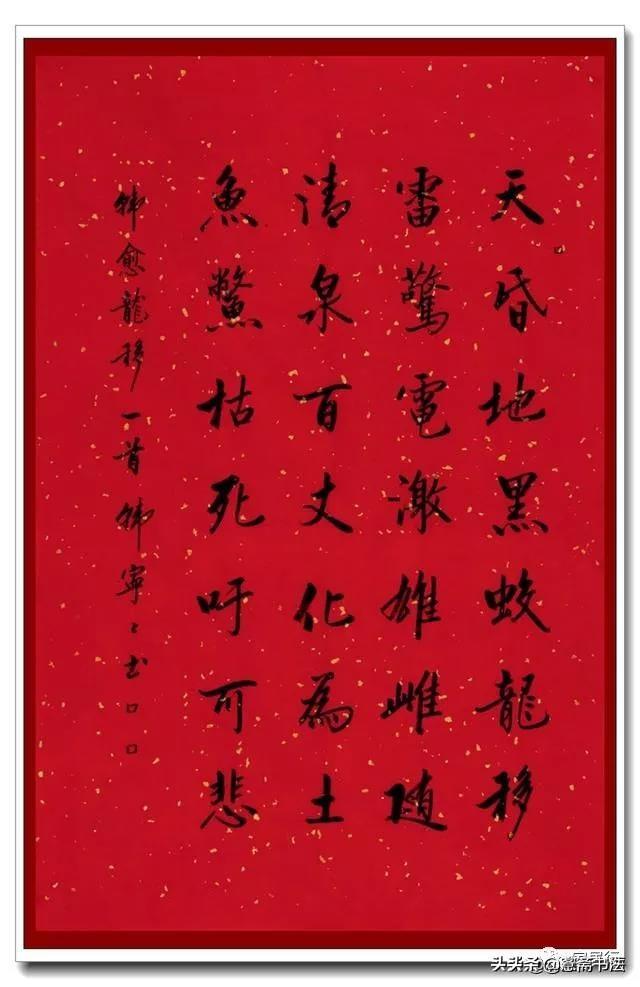 天昏地黑蛟龍移
雷驚電激雄雌随
清泉百丈化為土
魚鱉枯死吁可悲
韩愈龍移一首 韩寧〻书
头条@慧斋书法